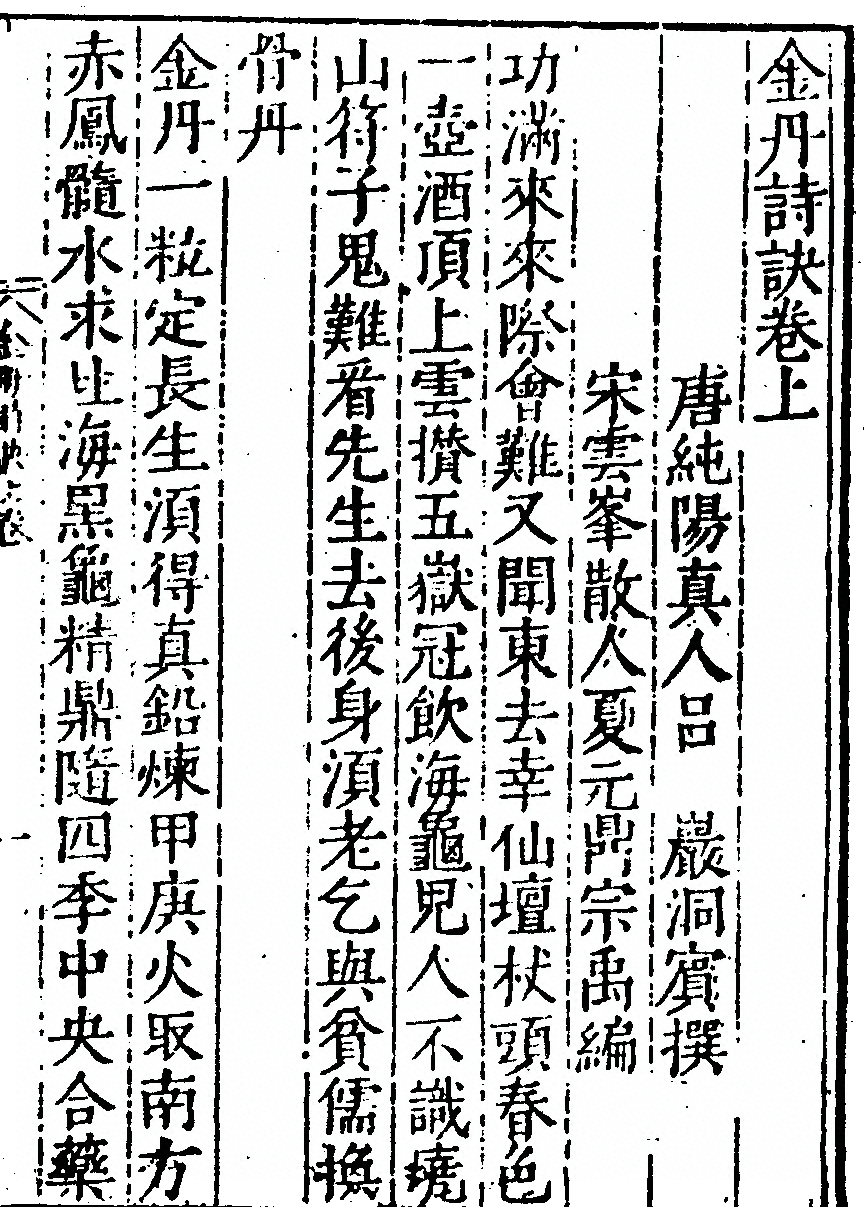 金丹詩訣卷上
唐純陽真人呂　巖洞賔撰
宋雲峯散人夏元鼎宗禹編
功滿來來際會難又聞東去幸仙壇杖頭春色
一壺酒頂上雲攅五嶽冠飲海龜兒人不識燒
山符子鬼難看先生去後身湏老乞與貧儒換
骨丹
金丹一粒定長生湏得真鉛煉甲庚火取南方
赤鳳髓水求北海黒龜精鼎隨四季中央合藥